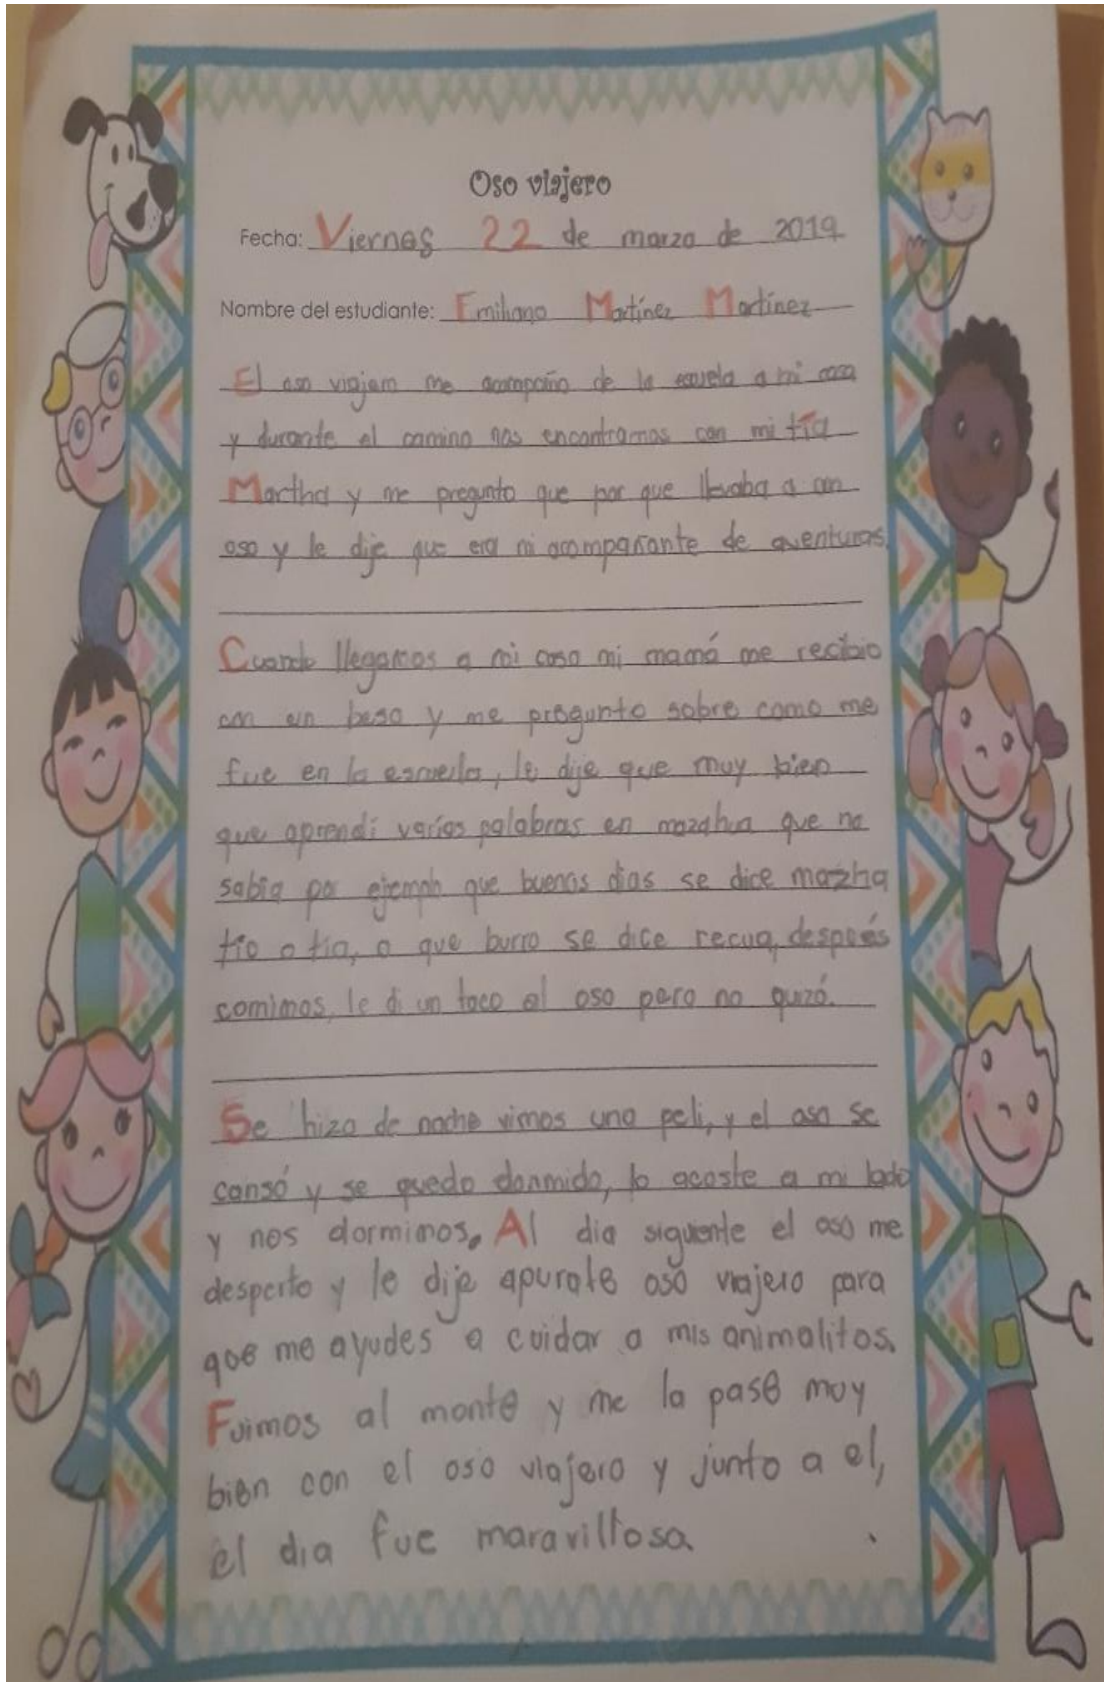 Oso viajero
Fecha: Viernes 22 de marzo de 2019
Nombre del estudiante: Emiliano Martínez Martínez
El oso viajero me acompaño de la escuela a mi casa
y durante el camino nos encontramos con mi tía
Martha y me pregunto que por que llevaba a un
oso y le dije que era mi acompañante de aventuras.
Cuando llegamos a mi casa mi mamá me recibio
con un beso y me pregunto sobre como me
fue en la escuela, le dije que muy bien
que aprendí varias palabras en mazahua que no
sabia por ejemplo que buenos dias se dice mazha
tio o tia, o que burro se dice recua, después
comimos, le di un taco al oso pero no quizó.
Se hizo de noche vimos una peli, y el oso se
cansó y se quedo dormido, lo acoste a mi lado
y nos dormimos. Al dia siguiente el oso me
desperto y le dije apurate oso viajero para
que me ayudes a cuidar a mis animalitos.
Fuimos al monte y me la pase muy
bien con el oso viajero y junto a el,
el dia fue maravilloso.